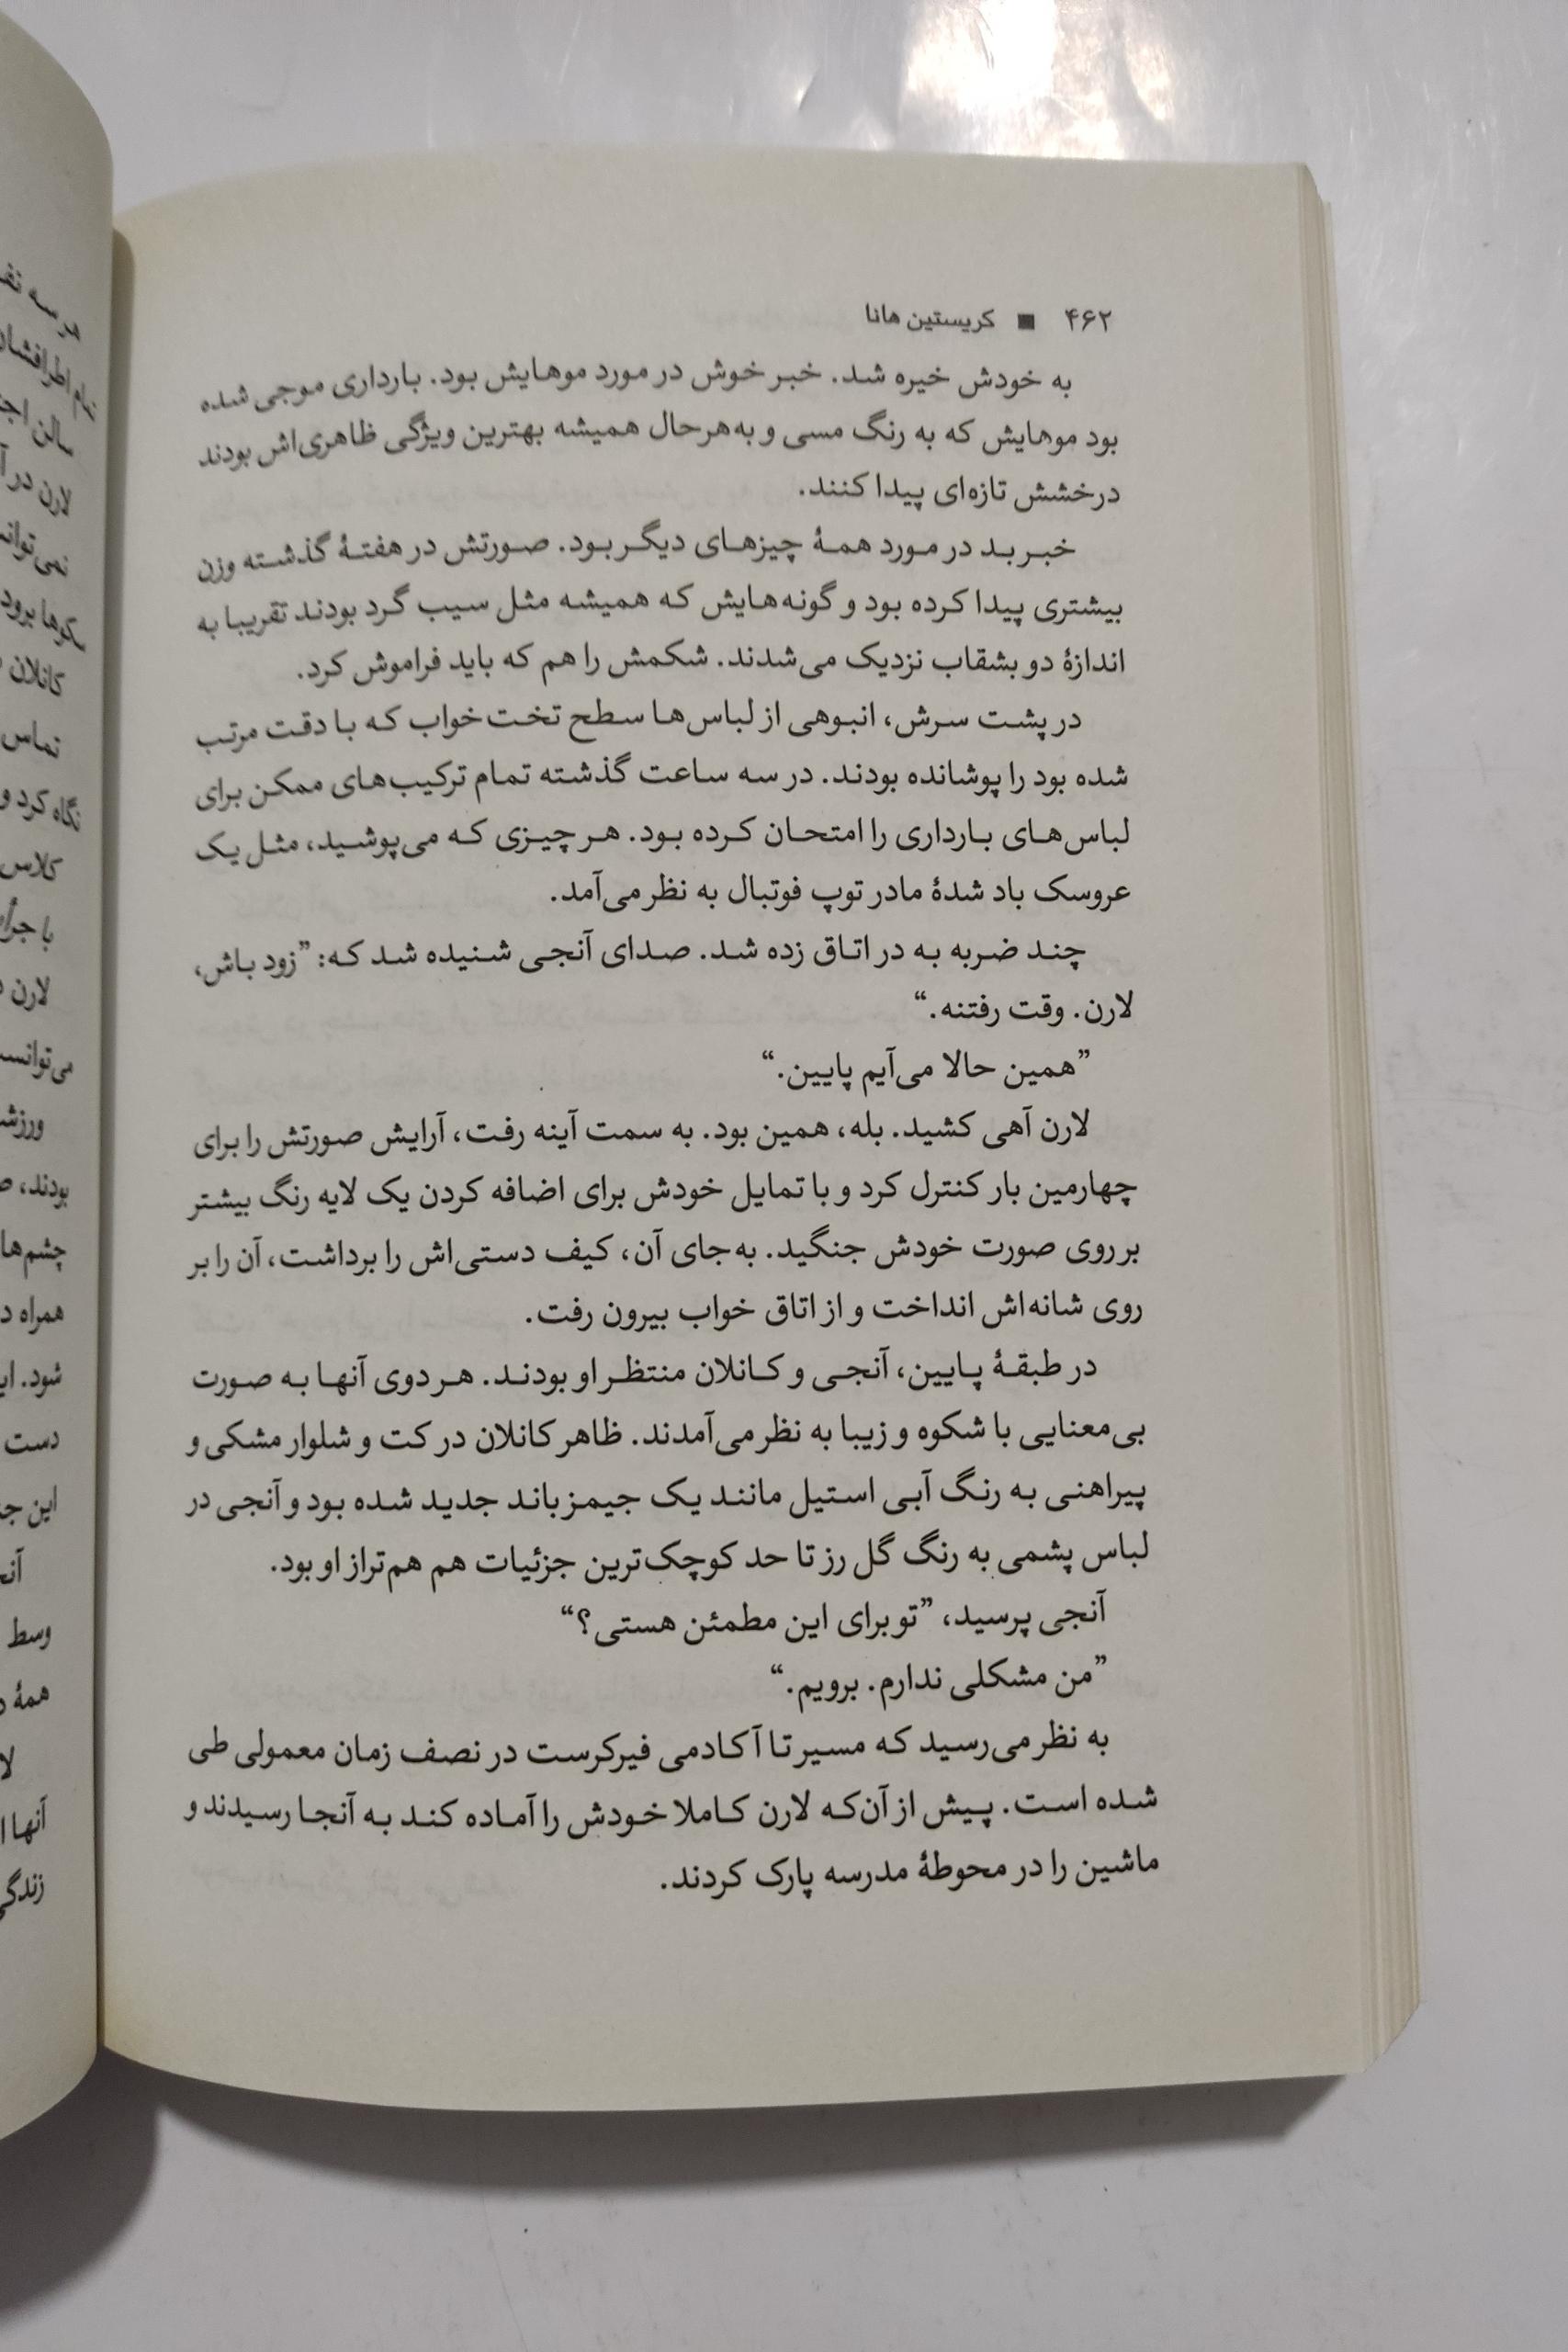 ۴۶۲ ■ کریستین هانا
به خودش خیره شد. خبر خوش در مورد موهایش بود. بارداری موجی شده
بود موهایش که به رنگ مسی و به‌هرحال همیشه بهترین ویژگی ظاهری‌اش بودند
درخشش تازه‌ای پیدا کنند.
خبر بد در مورد همهٔ چیزهای دیگر بود. صورتش در هفتهٔ گذشته وزن
بیشتری پیدا کرده بود و گونه‌هایش که همیشه مثل سیب گرد بودند تقریبا به
اندازهٔ دو بشقاب نزدیک می‌شدند. شکمش را هم که باید فراموش کرد.
در پشت سرش، انبوهی از لباس‌ها سطح تخت‌خواب که با دقت مرتب
شده بود را پوشانده بودند. در سه ساعت گذشته تمام ترکیب‌های ممکن برای
لباس‌های بارداری را امتحان کرده بود. هر چیزی که می‌پوشید، مثل یک
عروسک باد شدهٔ مادر توپ فوتبال به نظر می‌آمد.
چند ضربه به در اتاق زده شد. صدای آنجی شنیده شد که: ”زود باش،
لارن. وقت رفتنه.“
”همین حالا می‌آیم پایین.“
لارن آهی کشید. بله، همین بود. به سمت آینه رفت، آرایش صورتش را برای
چهارمین بار کنترل کرد و با تمایل خودش برای اضافه کردن یک لایه رنگ بیشتر
بر روی صورت خودش جنگید. به‌جای آن، کیف دستی‌اش را برداشت، آن را بر
روی شانه‌اش انداخت و از اتاق خواب بیرون رفت.
در طبقهٔ پایین، آنجی و کانلان منتظر او بودند. هر دوی آنها به صورت
بی‌معنایی با شکوه و زیبا به نظر می‌آمدند. ظاهر کانلان در کت و شلوار مشکی و
پیراهنی به رنگ آبی استیل مانند یک جیمزباند جدید شده بود و آنجی در
لباس پشمی به رنگ گل رز تا حد کوچک‌ترین جزئیات هم هم‌تراز او بود.
آنجی پرسید، ”تو برای این مطمئن هستی؟“
”من مشکلی ندارم. برویم.“
به نظر می‌رسید که مسیر تا آکادمی فیرکرست در نصف زمان معمولی طی
شده است. پیش از آن‌که لارن کاملا خودش را آماده کند به آنجا رسیدند و
ماشین را در محوطهٔ مدرسه پارک کردند.